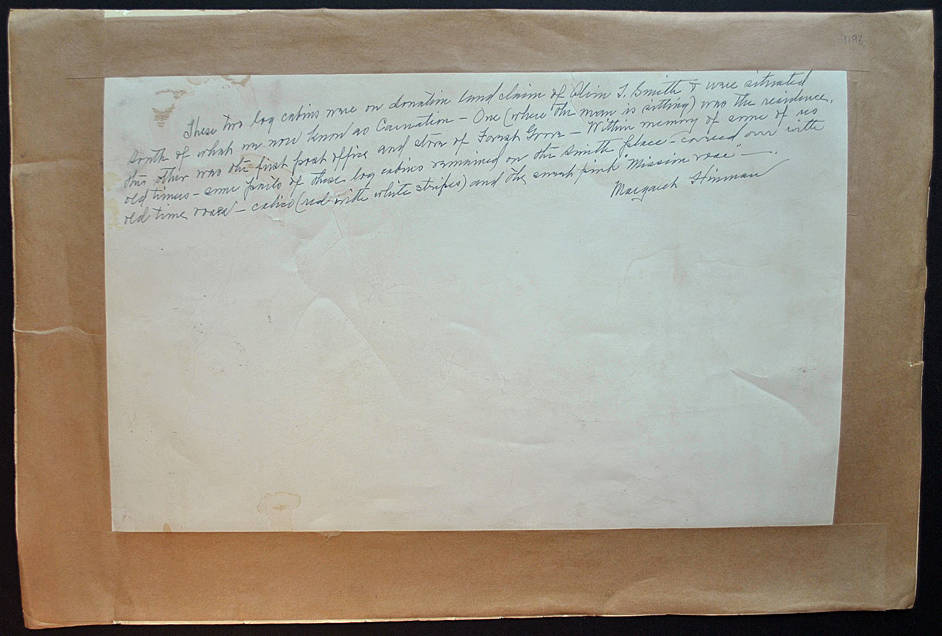 These two log cabins were on donation land claim of Alvin T. Smith & were situated
South of what we now know as Carnation - One (where the man is sitting) was the residence,
the other was the first post office and store of Forest Grove - Within memory of some of us
old timers - some parts of these log cabins remained on the Smith place - covered over with
old time roses - calico (red with white stripes) and the small pink "Mission rose" -.
Margaret Hinman